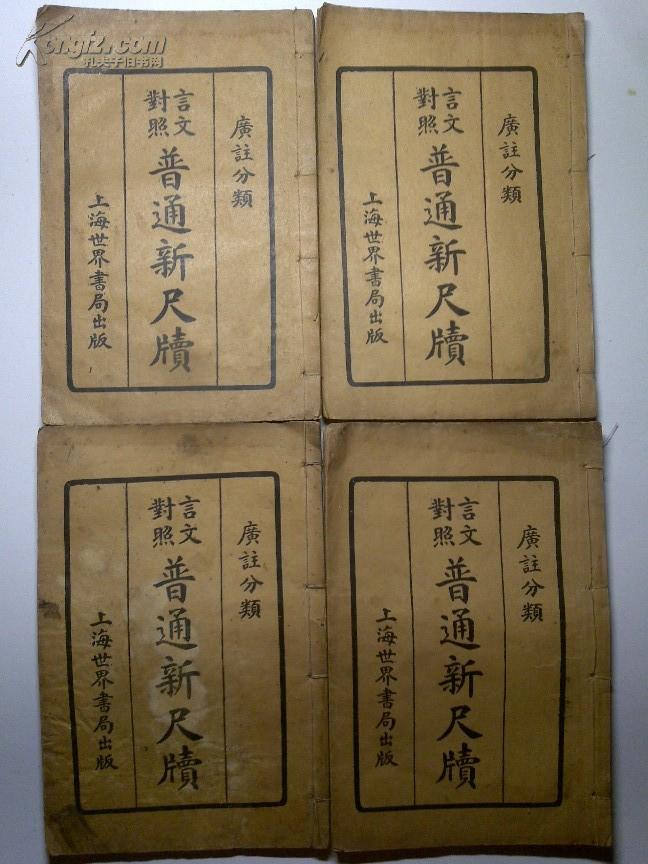 Kongfz.com
孔夫子旧书网
廣註分類
言文對照
普通新尺牘
上海世界書局出版
廣註分類
言文對照
普通新尺牘
上海世界書局出版
廣註分類
言文對照
普通新尺牘
上海世界書局出版
廣註分類
言文對照
普通新尺牘
上海世界書局出版